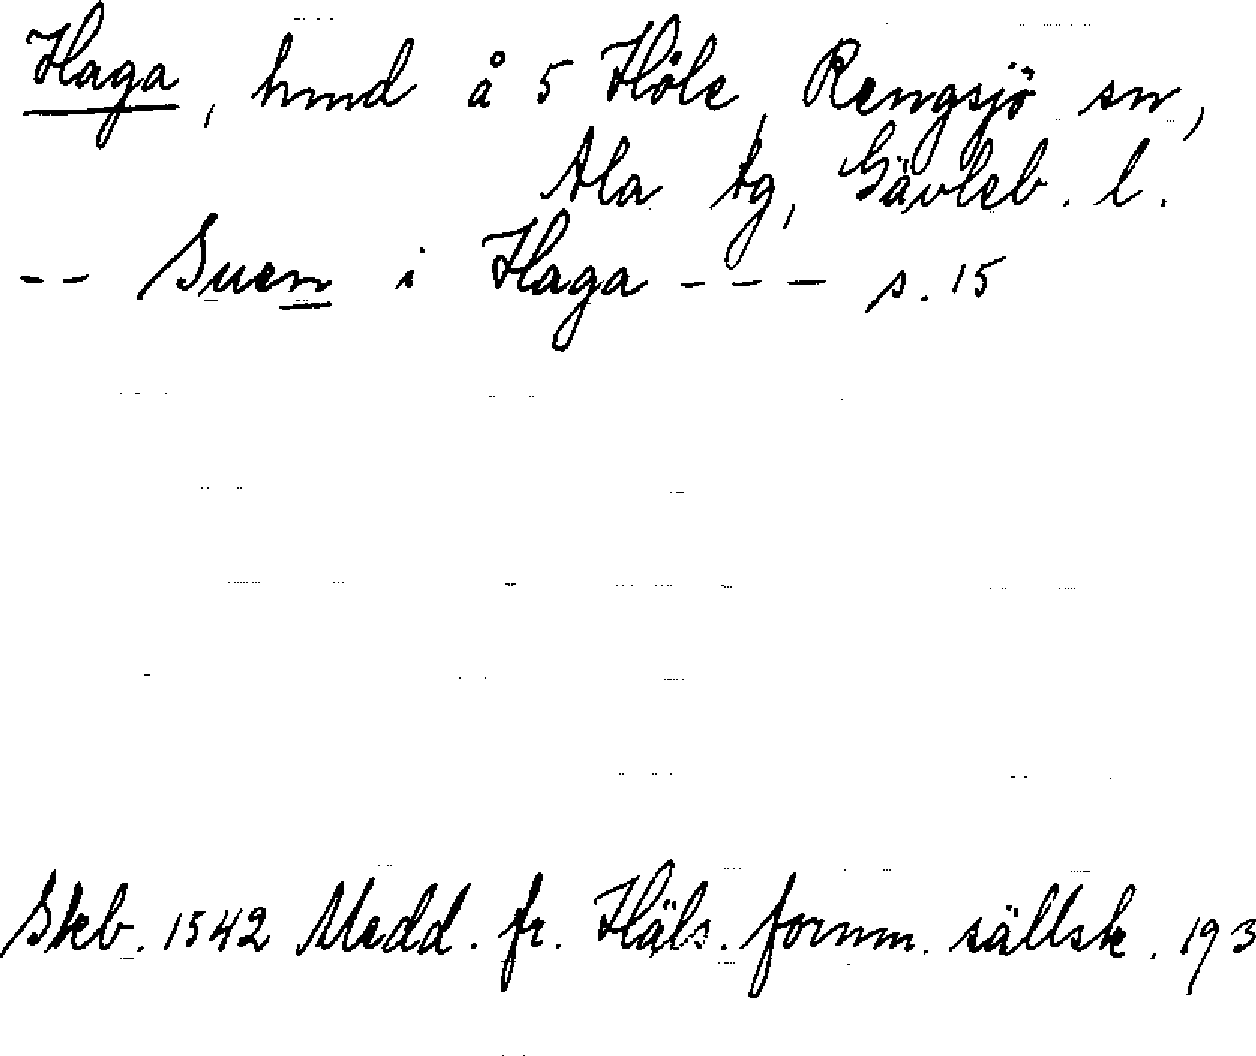 Haga, hmd å 5 Höle, Rengsjö sn,
Ala tg, Gävleb. l.
-- Suen i Haga --- s. 15
Skb. 1542 Medd. fr. Häls. fornm. sällsk. 193